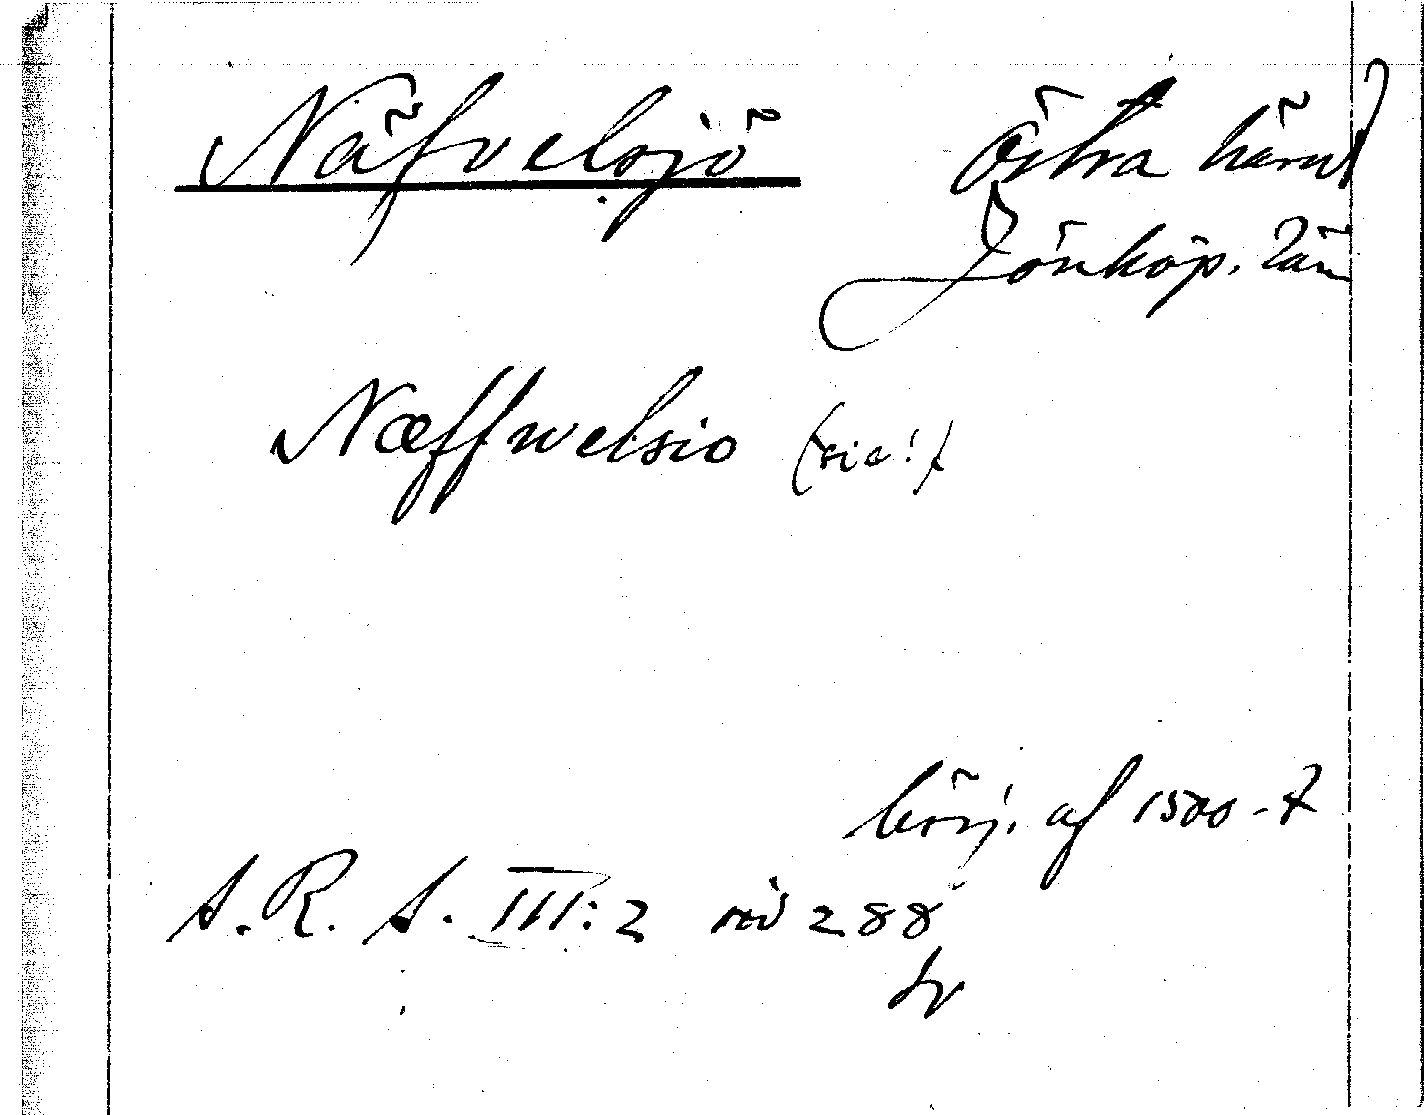 Näfvelsjö Östra härad
Jönköp. län
Næffwelsio (sic!)
börj. af 1500-t
S. R. S. III:2 sid 288